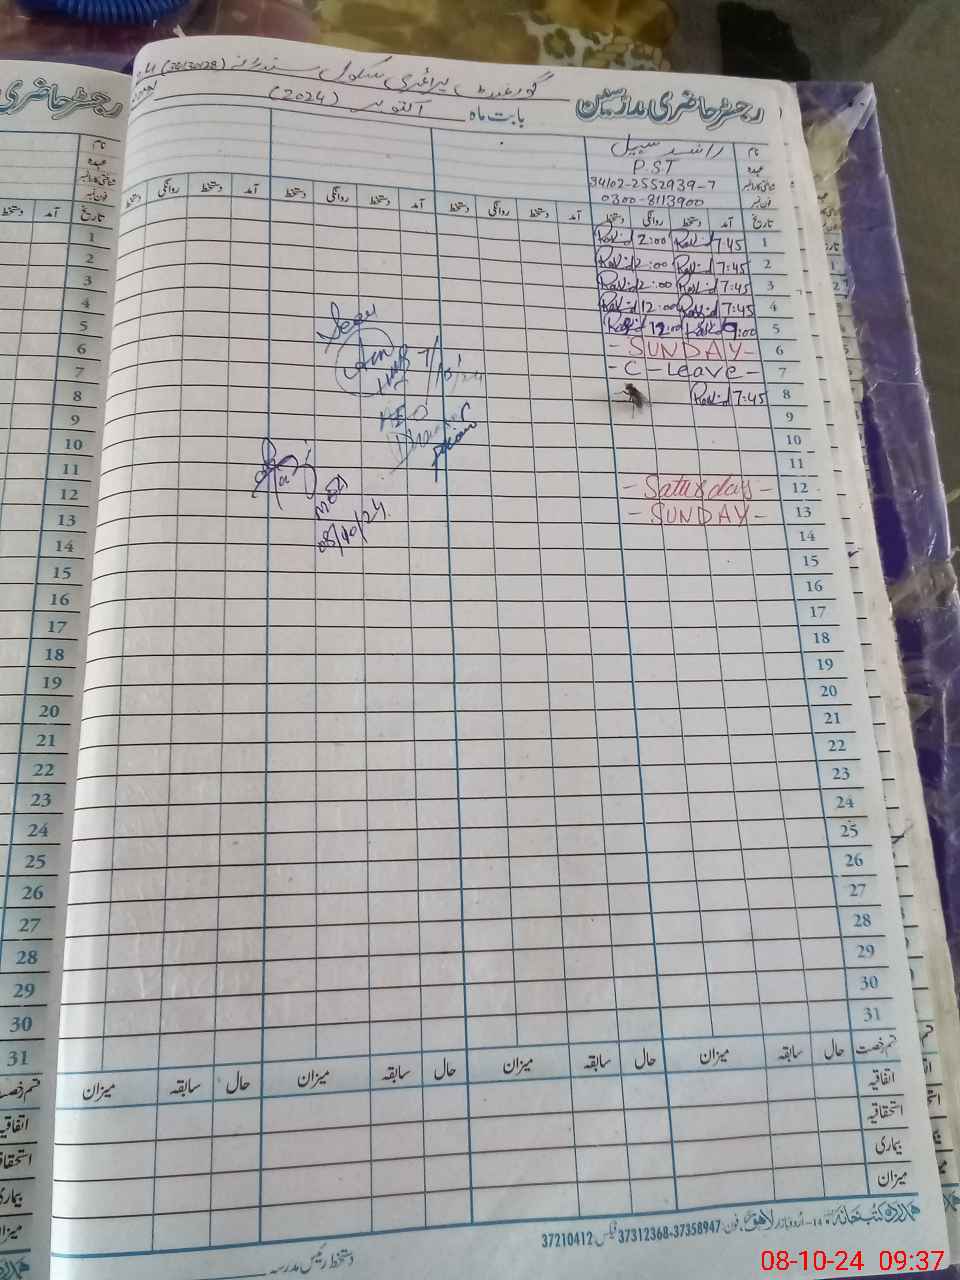 گورنمنٹ پرائمری سکول
رجسٹر حاضری مدرسین
بابت ماہ اکتوبر (2024)
نام راشد سہیل
عہدہ P.S.T
شناختی کارڈ نمبر 34102-2552939-7
فون نمبر 0300-8113900
تاریخ آمد دستخط روانگی دستخط آمد دستخط روانگی دستخط آمد دستخط روانگی دستخط آمد دستخط روانگی دستخط
1 7:45 Rashid 2:00 Rashid
2 7:45 Rashid 2:00 Rashid
3 7:45 Rashid 2:00 Rashid
4 7:45 Rashid 12:00 Rashid
5 9:00 Rashid 12:00 Rashid
6 - SUNDAY -
7 - C - Leave -
8 7:45 Rashid
9
10
11
12 - Saturday -
13 - SUNDAY -
14
15
16
17
18
19
20
21
22
23
24
25
26
27
28
29
30
31
Seen
7/10/24
AEO
08/10/24
قسم رخصت حال سابقہ میزان حال سابقہ میزان حال سابقہ میزان حال سابقہ میزان
اتفاقیہ
استحقاقیہ
بیماری
میزان
ہمدرد کتب خانہ 14-اردو بازار لاہور، فون: 37358947-37312368 فیکس: 37210412
دستخط رئیس مدرسہ
رجسٹر حاضری
نام
عہدہ
شناختی کارڈ نمبر
فون نمبر
تاریخ آمد دستخط
1
2
3
4
5
6
7
8
9
10
11
12
13
14
15
16
17
18
19
20
21
22
23
24
25
26
27
28
29
30
31
قسم رخصت
اتفاقیہ
بیماری
میزان
08-10-24 09:37